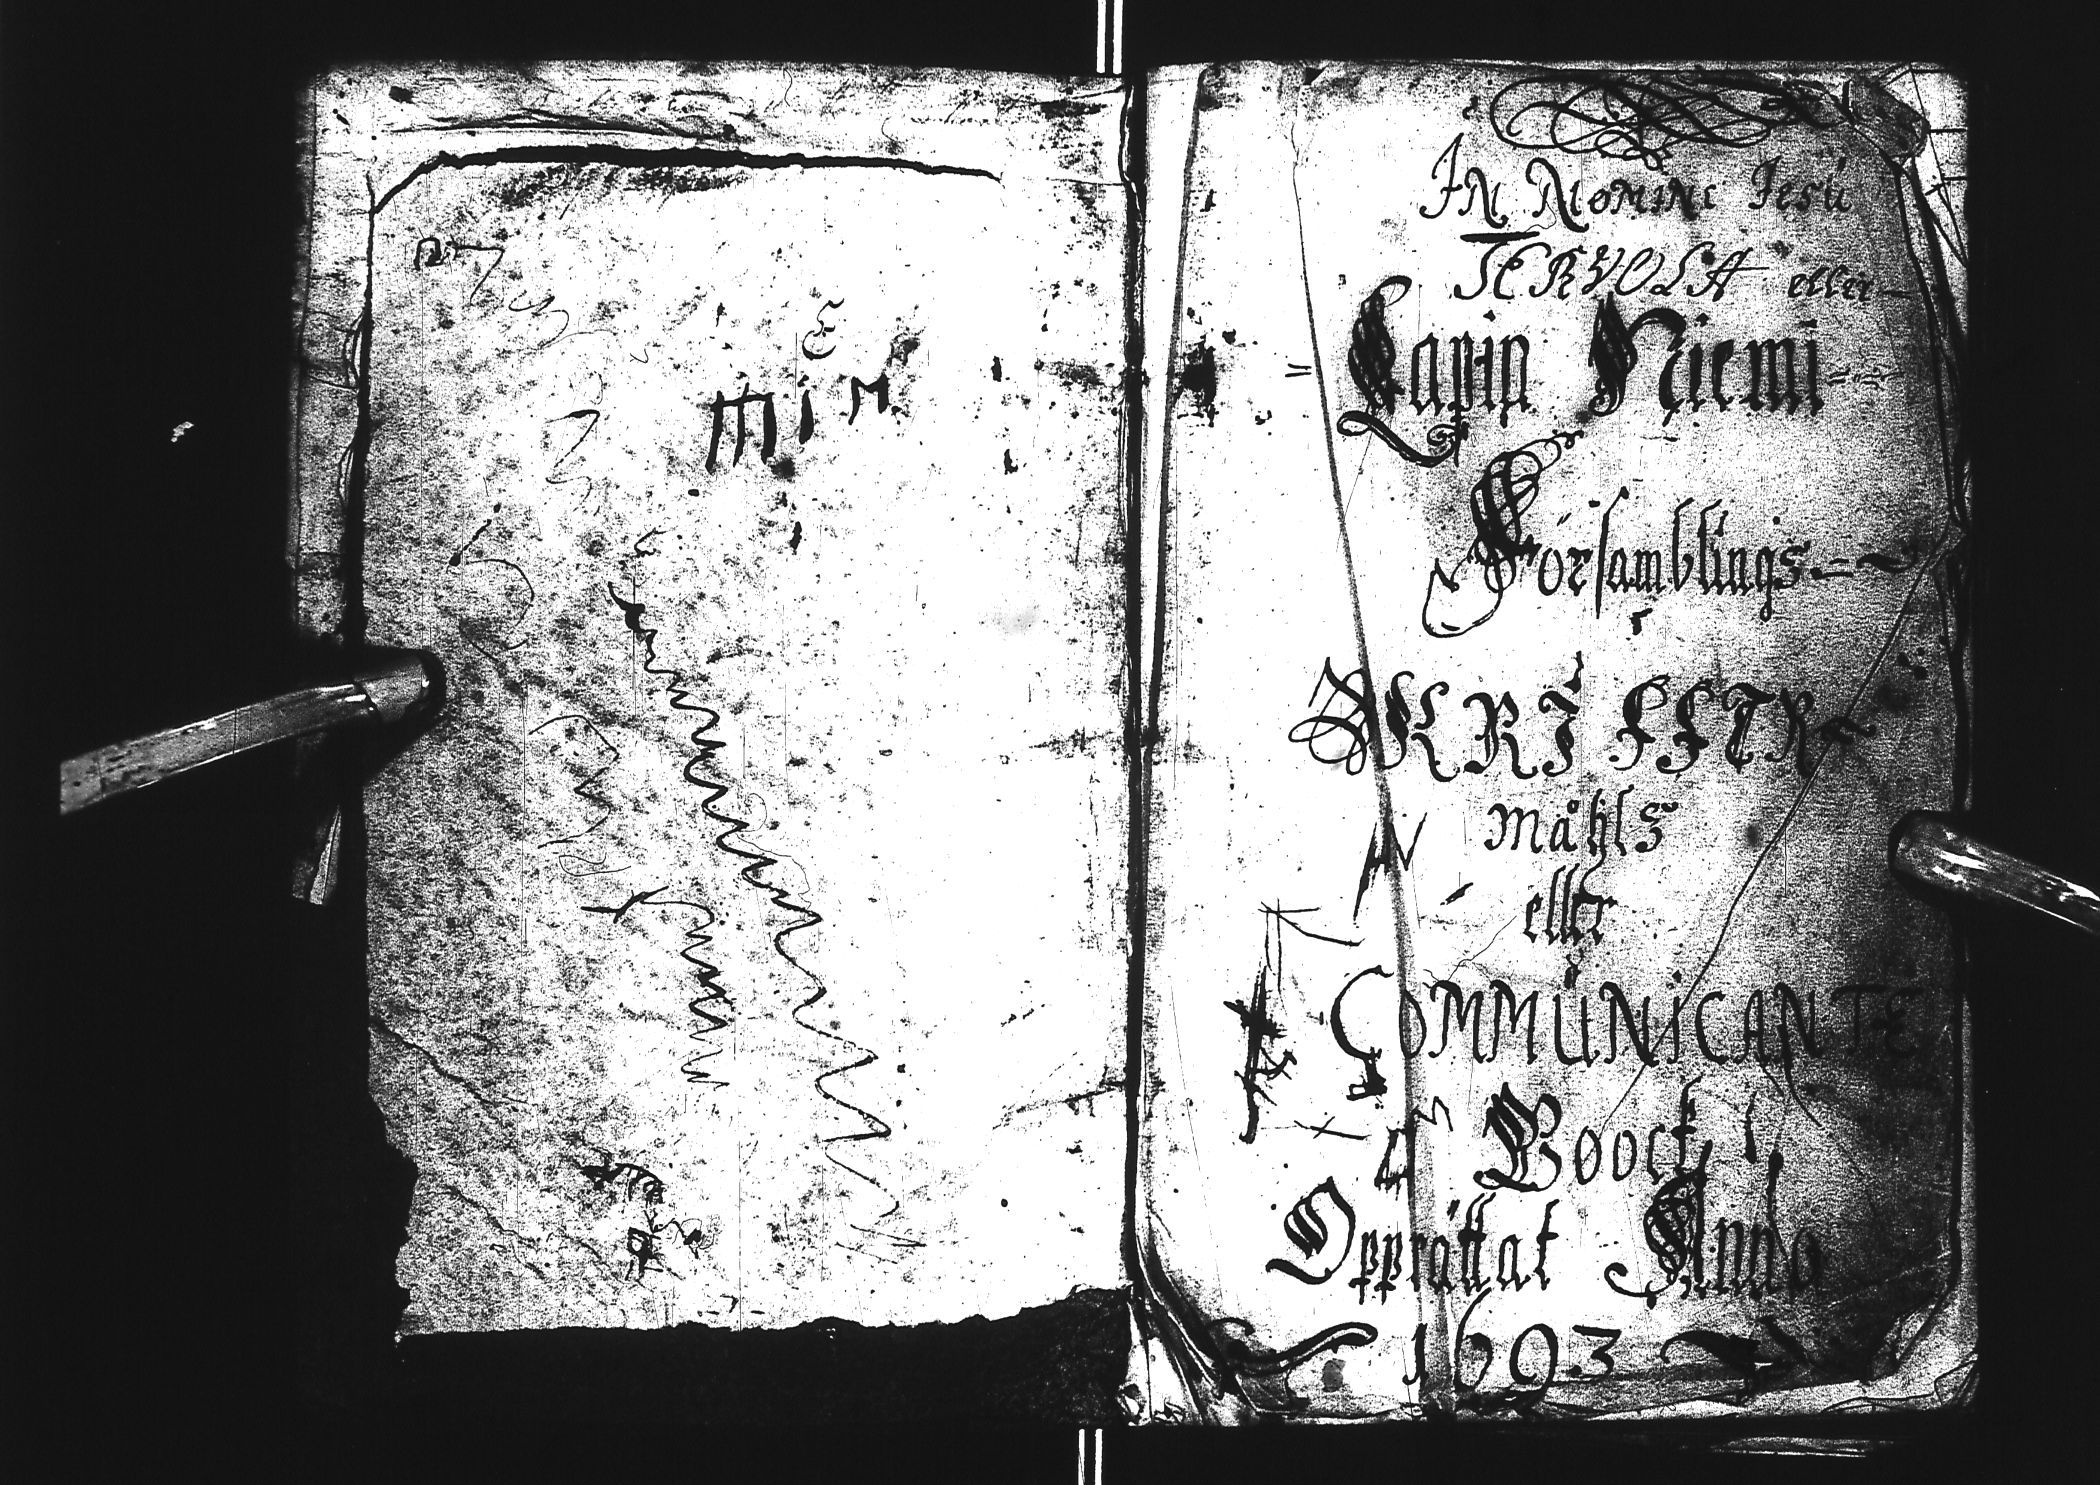 E
m i m
In Nomine Jesu
TERVOLA eller
= Lapin Niemi =
Församblings =
SKRIFFTR
måhls
eller
COMMŬNICANTE
Boock,
Opprättat Anno
1693